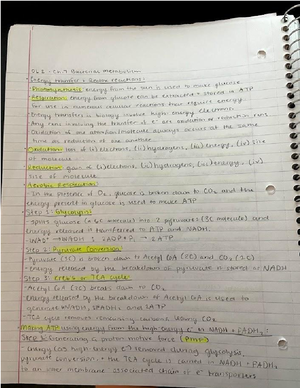 Ch. 7 Bacterial Metabolism
Energy transfer + Redox reactions:
Photosynthesis: energy from the sun is used to make glucose
Respiration: energy from glucose can be extracted + stored in ATP
for use in numerous cellular reactions that require energy
Energy transfer in biology involve high-energy electrons
Any rxn involving the transfer of e- are oxidation + reduction rxns
Oxidation of one atom/molecule always occurs at the same
time as reduction of one another
Oxidation: loss of (i) electrons, (ii) hydrogens, (iii) energy, (iv) size
of molecule
Reduction: gain of (i) electrons, (ii) hydrogens, (iii) energy, (iv)
size of molecule
Aerobic Respiration
In the presence of O2, glucose is broken down to CO2 and the
energy present in glucose is used to make ATP
Step 1: Glycolysis
splits glucose (a 6C molecule) into 2 pyruvates (3C molecule) and
energy released is transferred to ATP and NADH
Step 2: Pyruvate Conversion
Pyruvate (3C) is broken down to Acetyl CoA (2C) and CO2 (1C)
energy released by the breakdown of pyruvate is stored in NADH
Step 3: Krebs or TCA cycle
Acetyl CoA (2C) breaks down to CO2
energy released by the breakdown of Acetyl CoA is used to
generate NADH, FADH2 and ATP
TCA cycle
Making ATP using energy from the high energy e- in NADH + FADH2:
energy (as high energy e-) removed during glycolysis,
pyruvate conversion, + the TCA cycle is carried in NADH + FADH2
to an inner membrane associated chain of e- transporters